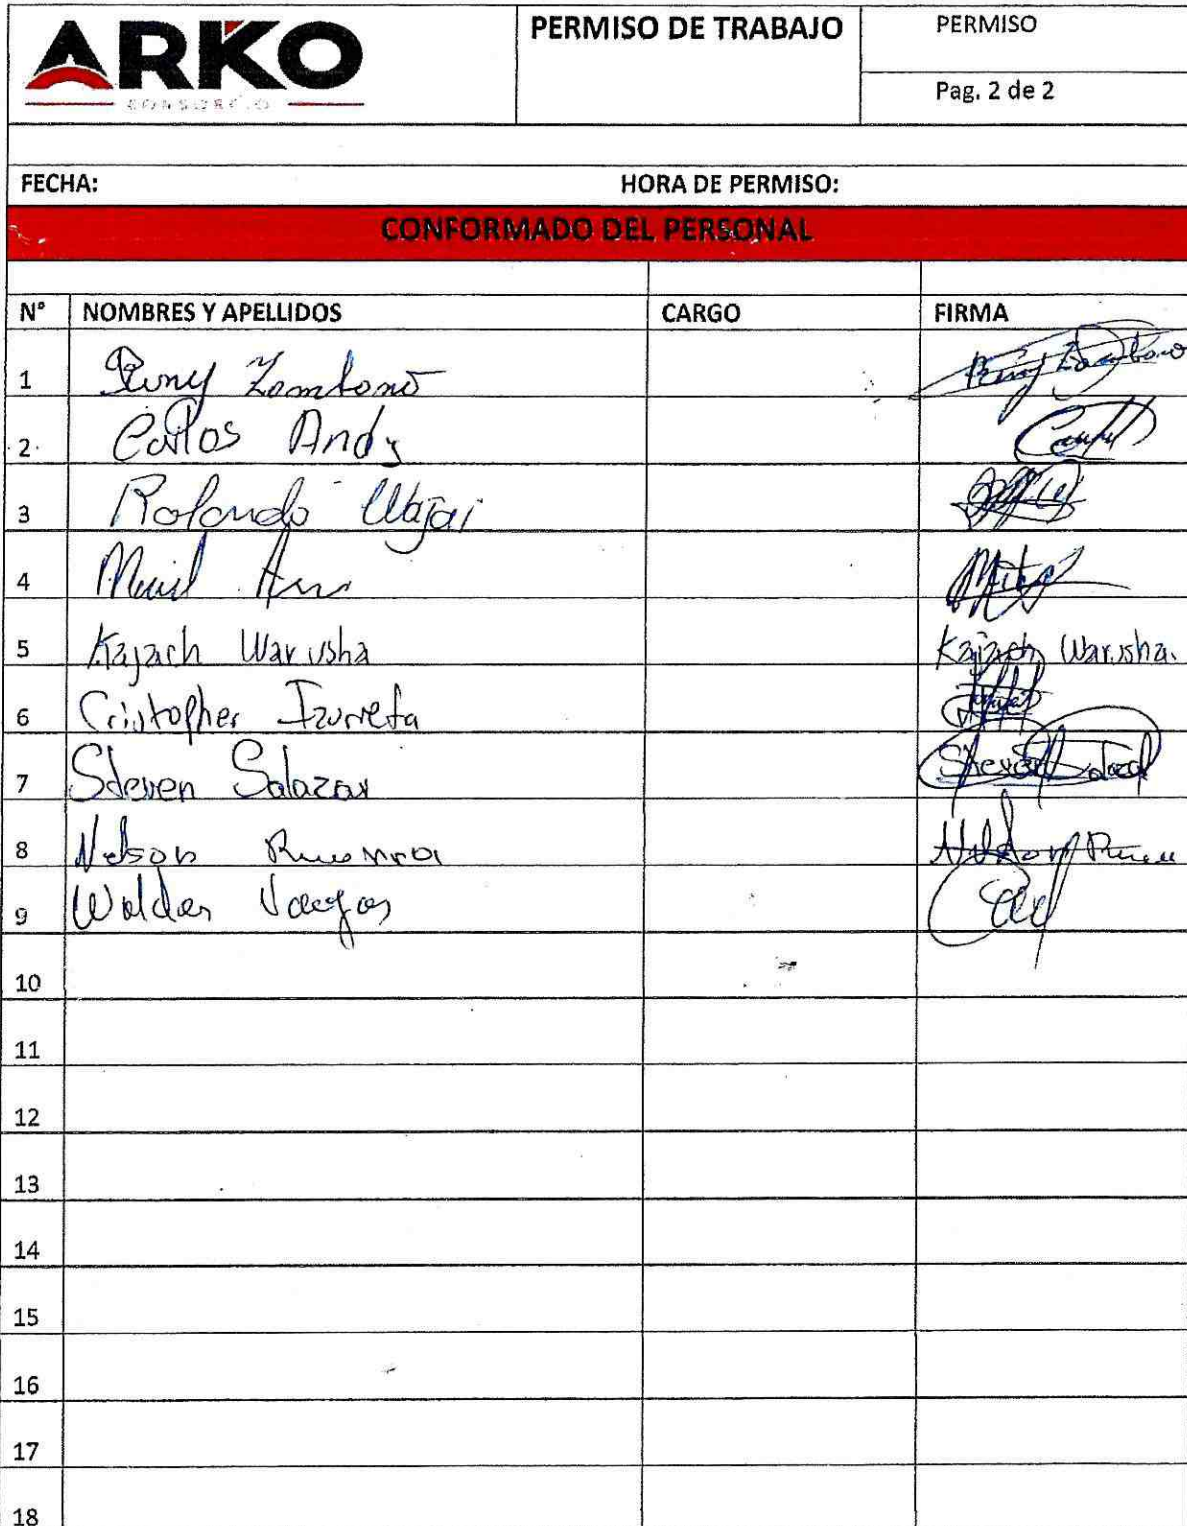 ARKO
CONSORCIO
PERMISO DE TRABAJO
PERMISO
Pag. 2 de 2
FECHA: HORA DE PERMISO:
CONFORMADO DEL PERSONAL
N° NOMBRES Y APELLIDOS CARGO FIRMA
1 Zambono
2 Carlos Andy
3 Rolando Wajai
4
5 Kajach Warusha Kajach Warusha.
6 Cristopher Izurreta
7 Steven Salazar Steven Salazar
8 Nelson
9 Walder Vargas
10
11
12
13
14
15
16
17
18